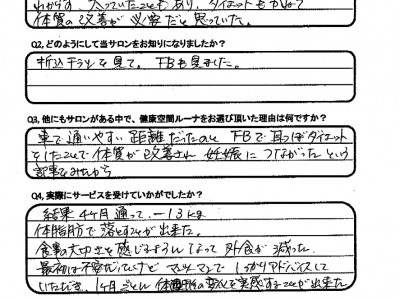 わからず、太っていたこともあり、ダイエットもかねて
体質の改善が必要だと思っていた。
Q2, どのようにして当サロンをお知りになりましたか?
折込チラシを見て。FBも見ました。
Q3, 他にもサロンがある中で、健康空間ルーナをお選び頂いた理由は何ですか?
車で通いやすい距離だったのと FBで耳つぼダイエット
をしたことで体質が改善され 妊娠につながったという
記事をみたから
Q4, 実際にサービスを受けていかがでしたか?
結果4ヶ月通って、-13kg
体脂肪で落とすことが出来た。
食事の大切さを感じるようになって 外食が減った。
最初は不安だったけど マンツーマンで しっかりアドバイスして
いただき、1ヶ月ごとに 体の変化を実感することが出来た